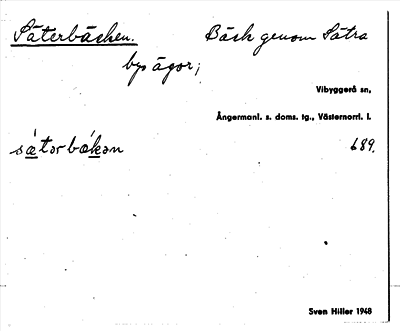 Säterbäcken. Bäck genom Sätra
bys ägor;
Vibyggerå sn,
Ångermanl. s. doms. tg., Västernorrl. l.
sätərbäkən 689.
Sven Hiller 1948